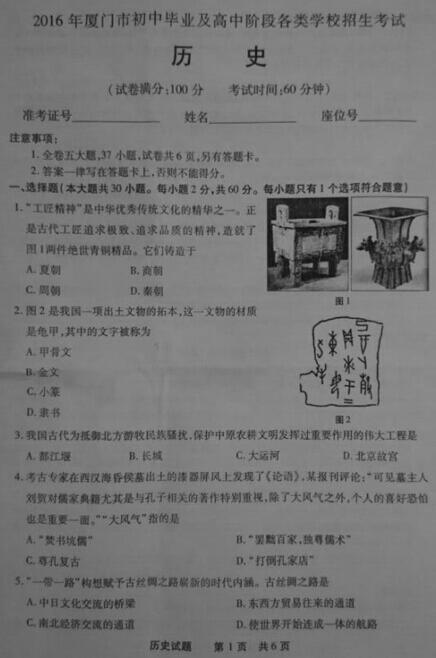 2016年厦门市初中毕业及高中阶段各类学校招生考试
历 史
(试卷满分:100分 考试时间:60分钟)
准考证号 姓名 座位号
注意事项:
1. 全卷五大题,37小题,试卷共6页,另有答题卡。
2. 答案一律写在答题卡上,否则不能得分。
一、选择题(本大题共30小题。每小题2分,共60分。每小题只有1个选项符合题意)
1. “工匠精神”是中华优秀传统文化的精华之一。正
是古代工匠追求极致、追求品质的精神,造就了
图1两件绝世青铜精品。它们铸造于
A. 夏朝 B. 商朝
C. 周朝 D. 秦朝
图1
2. 图2是我国一项出土文物的拓本,这一文物的材质
是龟甲,其中的文字被称为
A. 甲骨文
B. 金文
C. 小篆
D. 隶书
图2
3. 我国古代为抵御北方游牧民族骚扰,保护中原农耕文明发挥过重要作用的伟大工程是
A. 都江堰 B. 长城 C. 大运河 D. 北京故宫
4. 考古专家在西汉海昏侯墓出土的漆器屏风上发现了《论语》,某报刊评论:“可见墓主人
刘贺对儒家典籍尤其是与孔子相关的著作特别重视,除了大风气之外,个人的喜好恐怕
也是重要一面。”“大风气”指的是
A. “焚书坑儒” B. “罢黜百家,独尊儒术”
C. 尊孔复古 D. “打倒孔家店”
5. “一带一路”构想赋予古丝绸之路崭新的时代内涵。古丝绸之路是
A. 中日文化交流的桥梁 B. 东西方贸易往来的通道
C. 南北经济交流的通道 D. 使世界开始连成一体的航路
历史试题 第1页 共6页